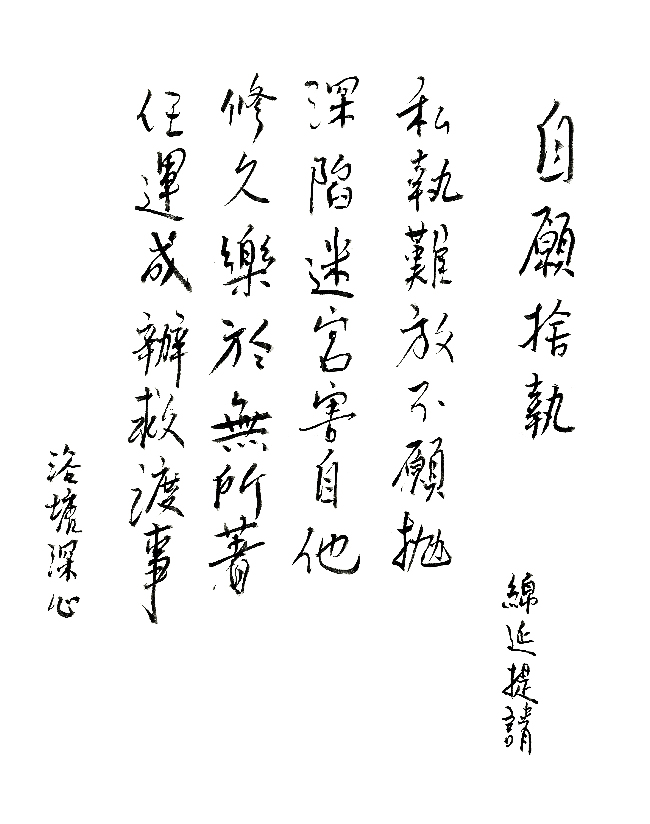 自願捨執
綿延提請
私執難放不願拋
深陷迷宮害自他
修久樂於無所著
任運成辦救渡事
浴塘深心